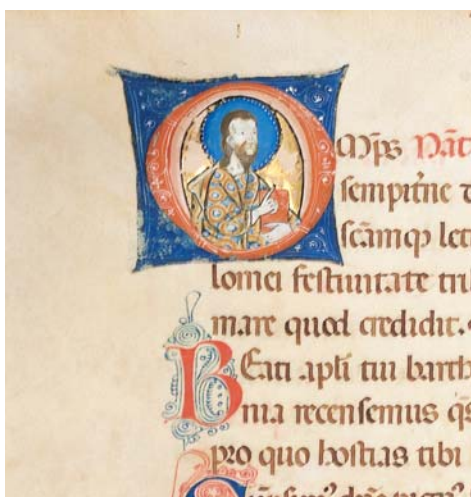 OMp̄s Nāt
sempit̄ne d
sc̄amq̄ let
lomei festiuitate tri
mare quod credidit.
BEati apl̄i tui barth
nia recensemus q̄s
pro quo hostias tibi